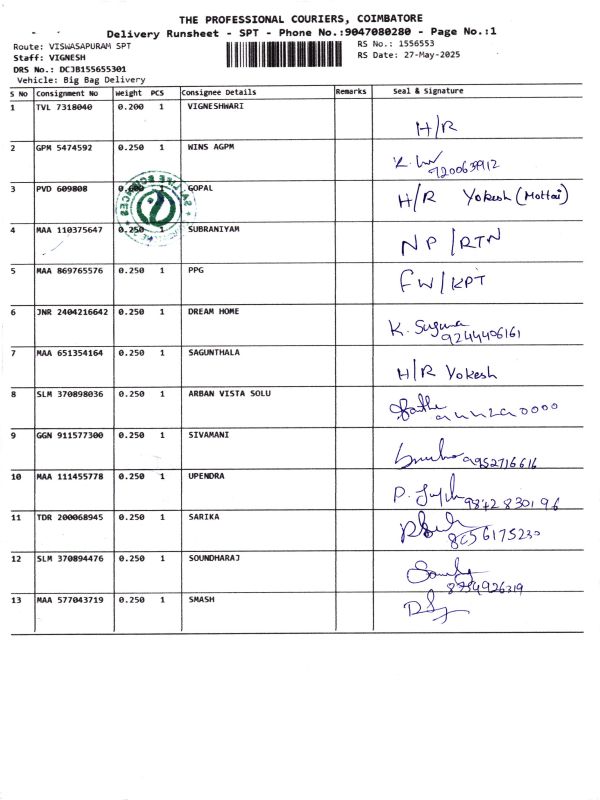 THE PROFESSIONAL COURIERS, COIMBATORE
Delivery Runsheet - SPT - Phone No.:9047080280 - Page No.:1
Route: VISWASAPURAM SPT
RS No.: 1556553
Staff: VIGNESH
RS Date: 27-May-2025
DRS No.: DCJB155655301
Vehicle: Big Bag Delivery
S No Consignment No Weight PCS Consignee Details Remarks Seal & Signature
1 TVL 7318040 0.200 1 VIGNESHWARI H/R
2 GPM 5474592 0.250 1 WINS AGPM
7200639912
3 PVD 609808 0.600 1 GOPAL H/R Yokesh (Mottai)
4 MAA 110375647 0.250 1 SUBRANIYAM NP/RTN
5 MAA 869765576 0.250 1 PPG FW/KPT
6 JNR 2404216642 0.250 1 DREAM HOME K. Suguna
9244406161
7 MAA 651354164 0.250 1 SAGUNTHALA H/R Yokesh
8 SLM 370898036 0.250 1 ARBAN VISTA SOLU
9 GGN 911577300 0.250 1 SIVAMANI 9952716616
10 MAA 111455778 0.250 1 UPENDRA 9842830196
11 TDR 200068945 0.250 1 SARIKA 8056175230
12 SLM 370894476 0.250 1 SOUNDHARAJ
8754926319
13 MAA 577043719 0.250 1 SMASH